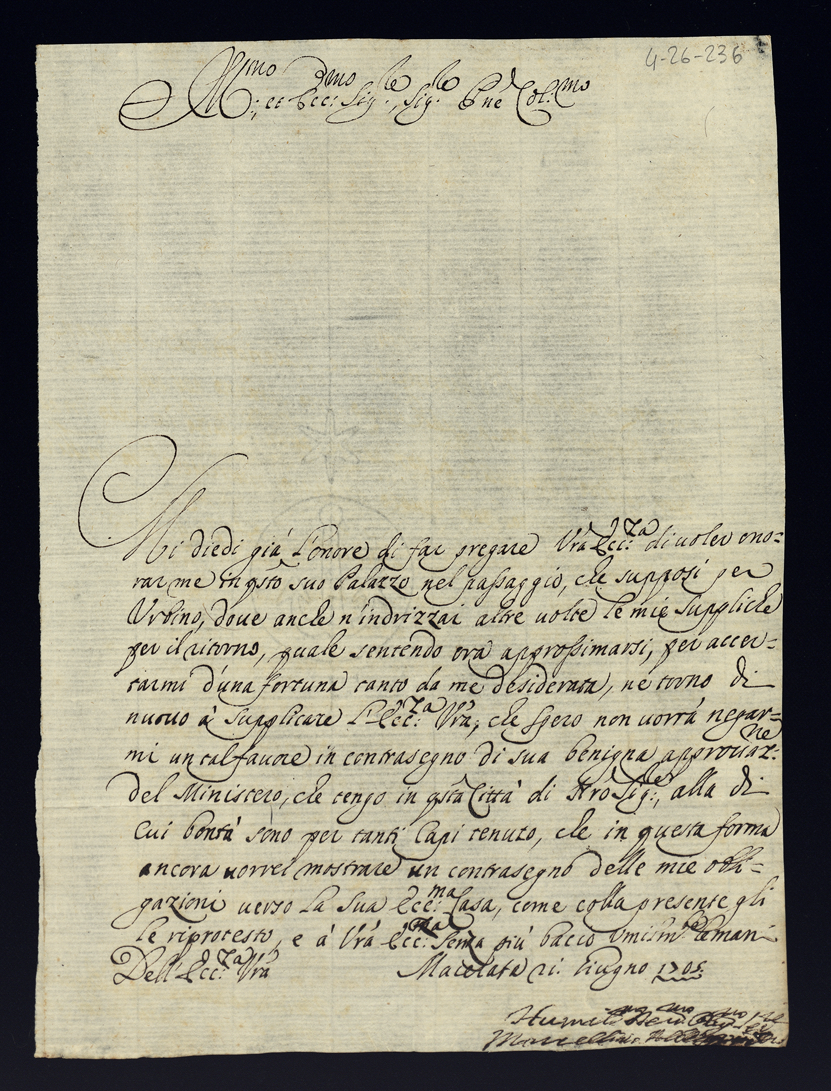 4-26-236
Ill.mo et Ecc.mo Sig.re, Sig.re Pne Col.mo
Mi diedi già l'onore di far pregare Vrã Ecc.za di voler ono=
rarme in qsto suo Palazzo nel passaggio, che supposi per
Urbino, dove anche n'indrizzai altre volte le mie suppliche
per il ritorno, quale sentendo ora approssimarsi, per accer=
tarmi d'una fortuna tanto da me desiderata, né torno di
nuovo à supplicare l'Ecc.za Vrã, che spero non vorrà negar=
mi un tal favore in contrasegno di sua benigna approvaz.ne
del Ministero, che tengo in qsta Città di Nrõ Sig.re, alla di
cui bontà sono per tanti Capi tenuto, che in questa forma
ancora vorrei mostrare un contrasegno delle mie obli=
gazioni verso la sua Ecc.ma Casa, come colla presente gli
le riprotesto, e à Vrã Ecc.za senza più baccio umilm.te le mani
Dell'Ecc.za Vrã Macerata 21 Giugno 1705
Humil.mo